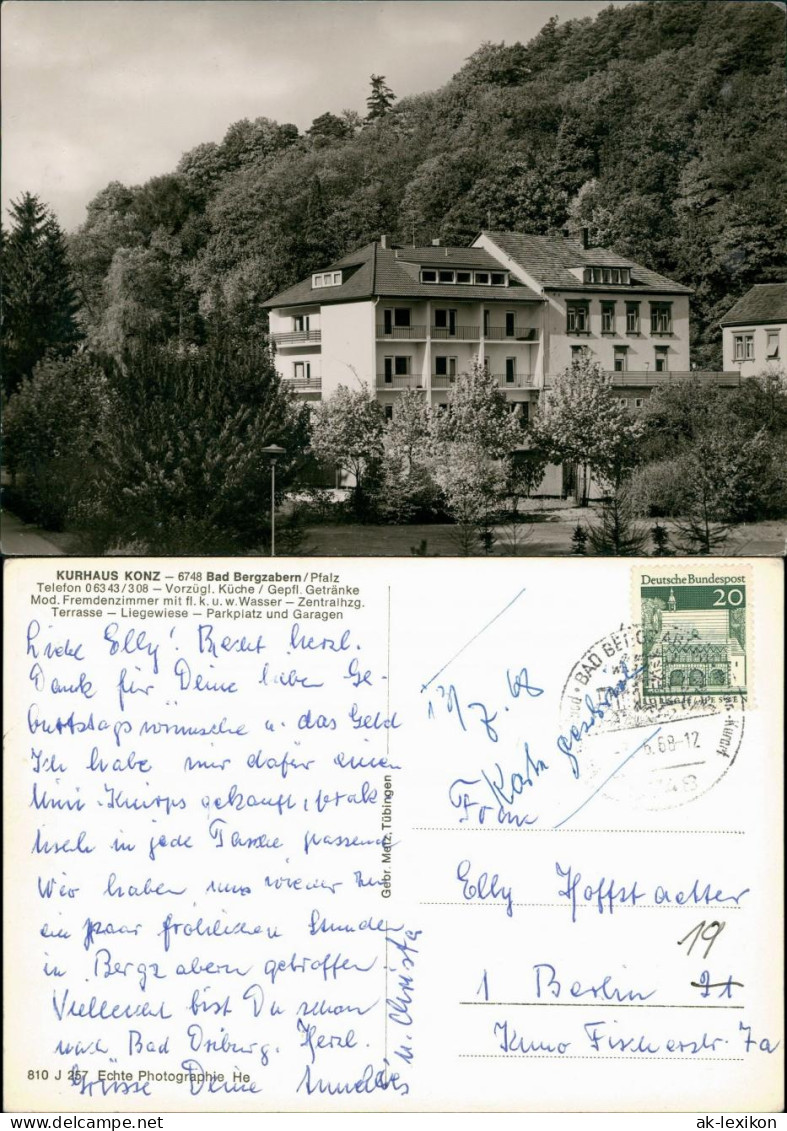 KURHAUS KONZ – 6748 Bad Bergzabern/Pfalz
Telefon 06343/308 – Vorzügl. Küche / Gepfl. Getränke
Mod. Fremdenzimmer mit fl. k. u. w. Wasser – Zentralhzg.
Terrasse – Liegewiese – Parkplatz und Garagen
Liebe Elly! Recht herzl.
Dank für Deine lieben Ge-
burtstagswünsche u. das Geld
Ich habe mir dafür einen
Mini-Knirps gekauft, prak
tisch in jede Tasche passend
Wir haben uns wieder für
ein paar fröhlichen Stunden
in Bergzabern getroffen.
Vielleicht bist Du schon
nach Bad Driburg. Herzl.
Grüsse Deine
u. Christa
810 J 257 Echte Photographie He
Gebr. Matz, Tübingen
Deutsche Bundespost
20
BAD BERGZABERN
6.68-12
Kurort
12/7. 68
Karte geschrieben
Frau
Elly Hoffstaetter
19
1 Berlin 31
Kuno Fischerstr. 7a
ak-lexikon
www.delcampe.net